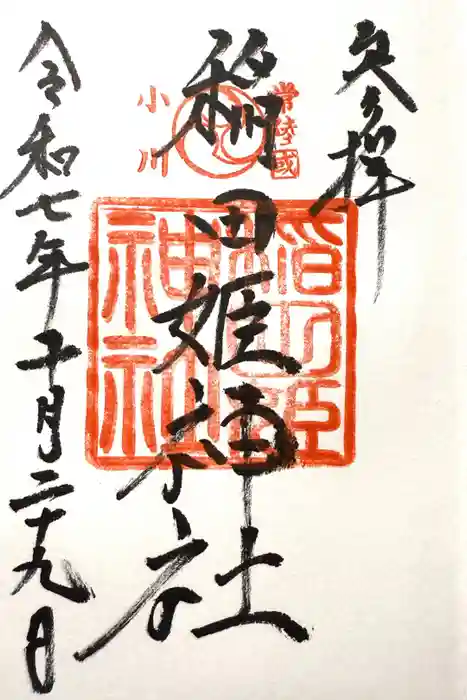 奉拝
常陸國
小川
稲田姫神社
稲田姫神社
令和七年十月二十九日